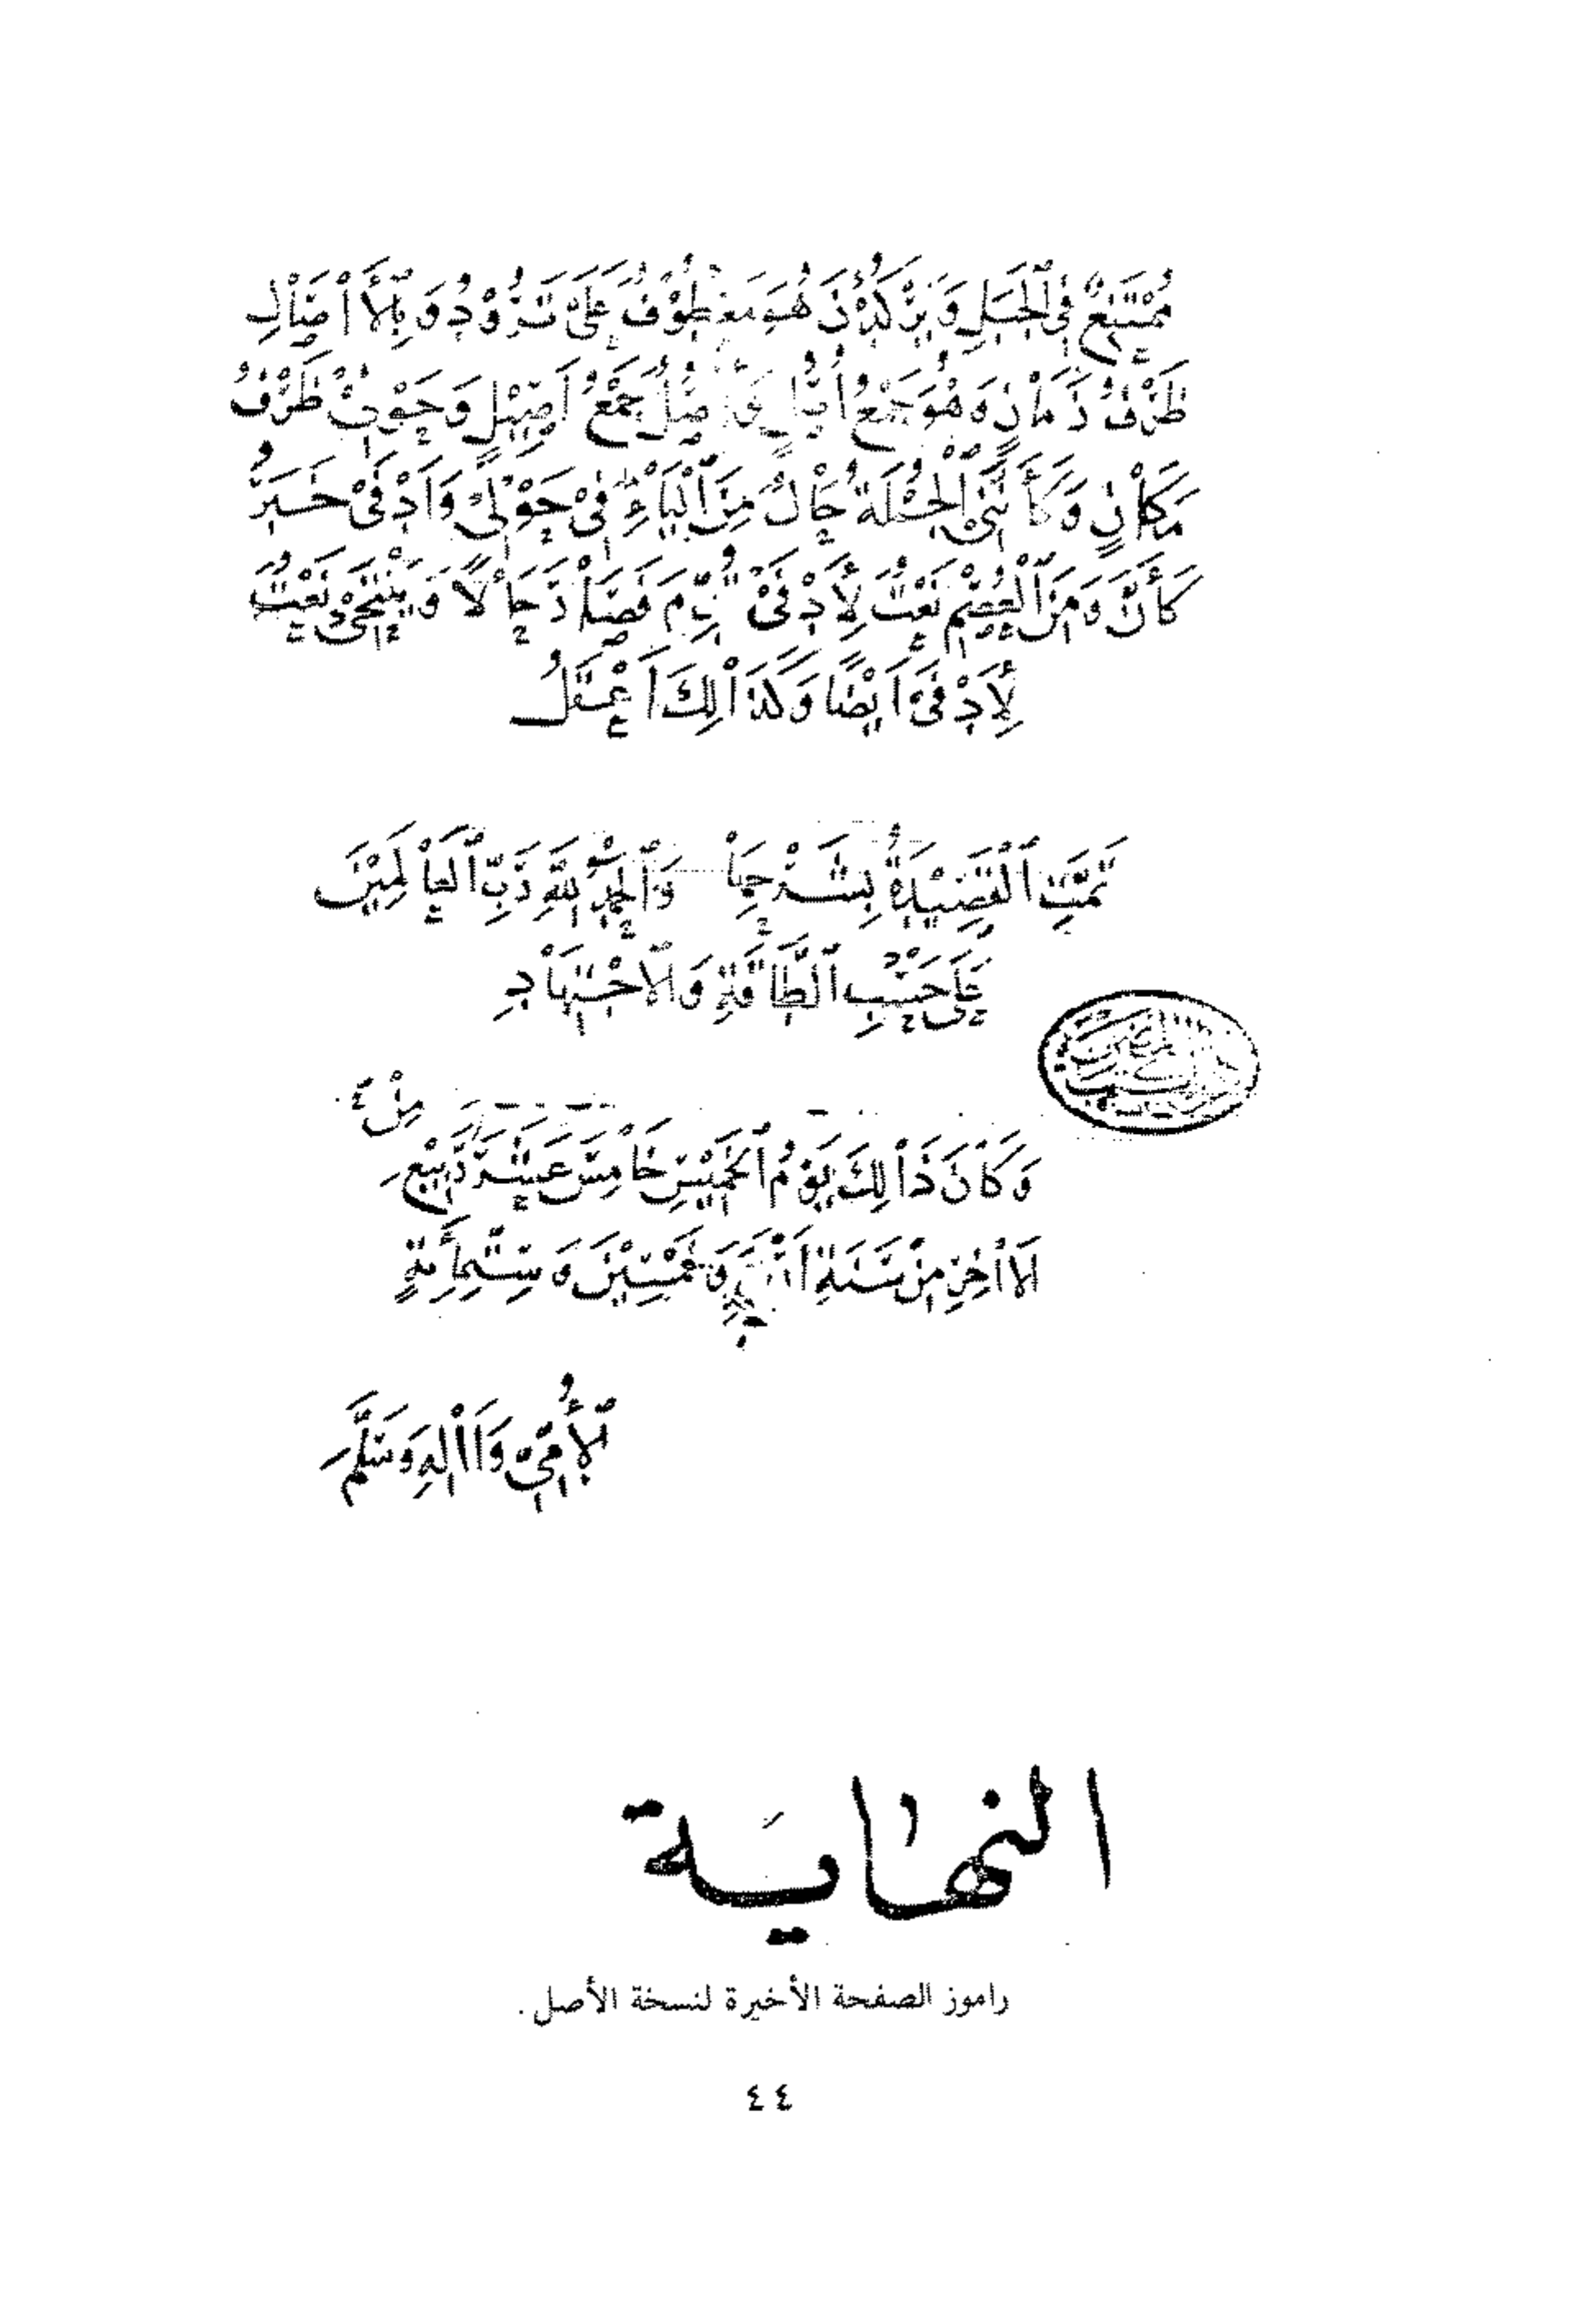 مُمْتَنِعٌ فِي ٱلْجَبَلِ وَيَرْكُدْنَ هُوَ مَعْطُوْفٌ عَلَى تَرُوْدُ وَبِٱلْأَاْصَاْلِ
ظَرْفُ زَمَاْنٍ وَهُوَ جَمْعُ أُصُلٍ وَأُصُلٌ جَمْعُ اَصِيْلٍ وَحَوْلِيْ ظَرْفُ
مَكَاْنٍ وَكَأَنَّنِيْ ٱلْجُمْلَةُ حَاْلٌ مِنَ ٱلْيَاْءِ فِيْ حَوْلِيْ وَاَدْفَىْ خَبَرُ
كَأَنَّ وَمِنَ ٱلْعُصْمِ نَعْتٌ لِأَدْفَىْ قُدِّمَ فَصَاْرَ حَاْلًا وَيَنْتَحِيْ نَعْتٌ
لِأَدْفَىْ اَيْضًا وَكَذَاْلِكَ اَعْقَلُ
تَمَّتِ ٱلْقَصِيْدَةُ بِشَرْحِهَاْ وَٱلْحَمْدُ لِلّٰهِ رَبِّ ٱلْعَاْلَمِيْنَ
عَلَى حَسَبِ ٱلطَّاْقَةِ وَٱلْاجْتِهَاْدِ
مِنْ
وَكَاْنَ ذَاْلِكَ يَوْمُ ٱلْخَمِيْسِ خَاْمِسَ عَشَرَ رَبِيْعِ
اَلْأاْخِرِ مِنْ سَنَةِ وَخَمْسِيْنَ وَسِتِّمِاْئَةٍ
ٱلْأُمِّيِّ وَاَاْلِهِ وَسَلَّمَ
النهاية
راموز الصفحة الأخيرة لنسخة الأصل .
٤٤